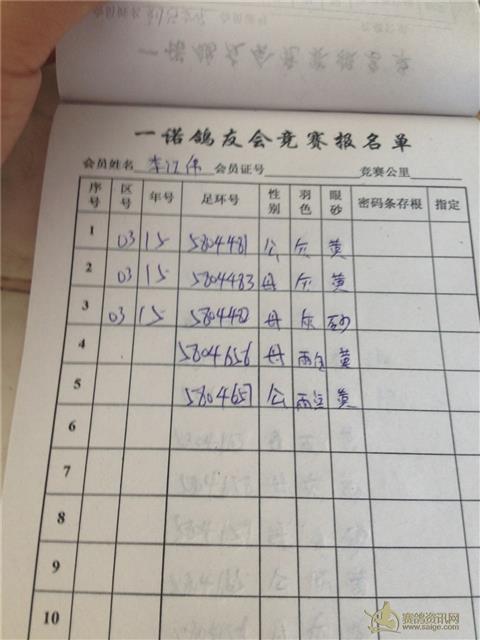 一诺鸽友会竞赛报名单
会员姓名 李江伟 会员证号 竞赛公里
序号 区号 年号 足环号 性别 羽色 眼砂 密码条存根 指定
1 03 15 5804481 公 灰 黄
2 03 15 5804483 母 灰 黄
3 03 15 5804482 母 灰 砂
4 5804656 母 雨点 黄
5 5804657 公 雨点 黄
6
7
8
9
10
赛鸽资讯网
www.saige.com